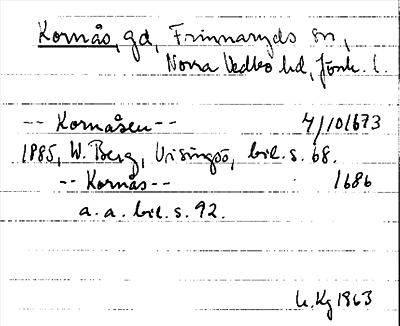 Kornås, gd, Frinnaryds sn,
Norra Vedbo hd, Jönk. l.
-- Kornåsen -- 4/10 1673
1885, W. Berg, Visingsö, bil. s. 68.
-- Kornås -- 1686
a. a. bil. s. 92.
U. Kg 1963